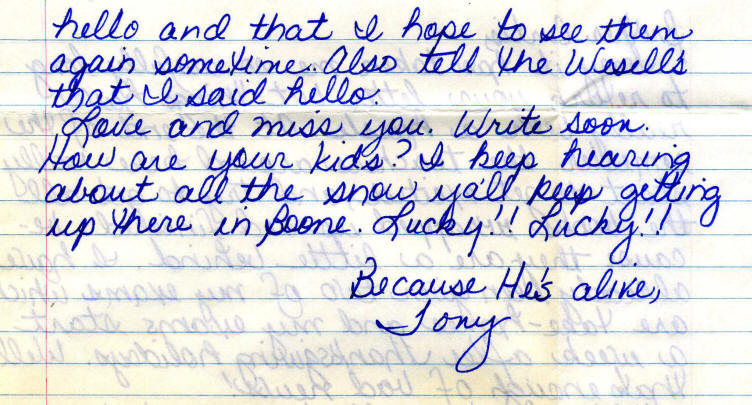 hello and that I hope to see them
again sometime. Also tell the Wesells
that I said hello.
Love and miss you. Write soon.
How are your kids? I keep hearing
about all the snow ya'll keep getting
up there in Boone. Lucky!! Lucky!!
Because He's alive,
Tony